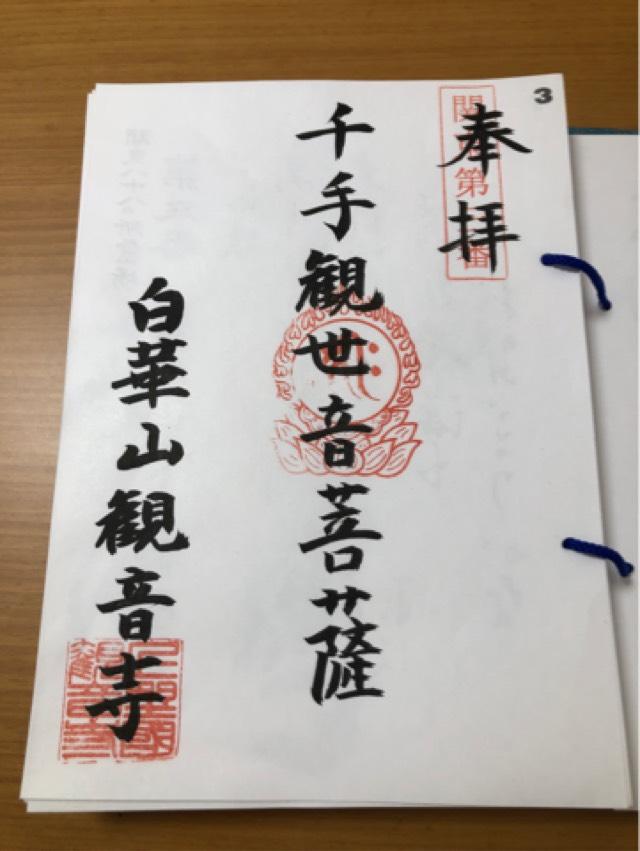 3
奉拝
千手観世音菩薩
白華山観音寺